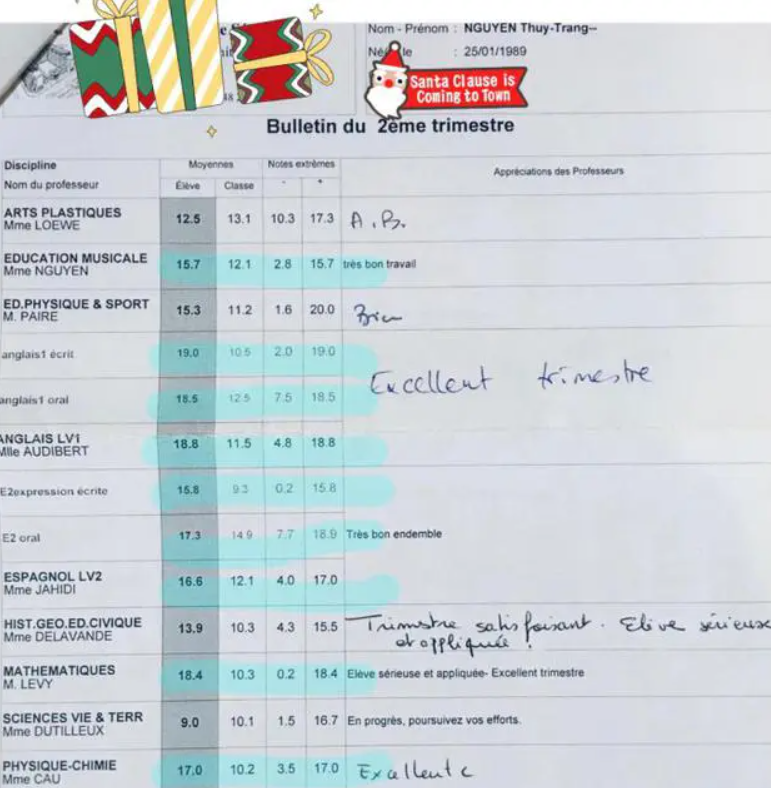 Nom - Prénom : NGUYEN Thuy-Trang--
: 25/01/1989
Santa Clause is
Coming to Town
Bulletin du 2ème trimestre
Discipline Moyennes Notes extrêmes Appréciations des Professeurs
Nom du professeur Élève Classe - +
ARTS PLASTIQUES 12.5 13.1 10.3 17.3 A.B.
Mme LOEWE
EDUCATION MUSICALE 15.7 12.1 2.8 15.7 très bon travail
Mme NGUYEN
ED.PHYSIQUE & SPORT 15.3 11.2 1.6 20.0 Bien
M. PAIRE
anglais1 écrit 19.0 10.5 2.0 19.0
Excellent trimestre
anglais1 oral 18.5 12.5 7.5 18.5
ANGLAIS LV1 18.8 11.5 4.8 18.8
Mlle AUDIBERT
E2expression écrite 15.8 9.3 0.2 15.8
E2 oral 17.3 14.9 7.7 18.9 Très bon endemble
ESPAGNOL LV2 16.6 12.1 4.0 17.0
Mme JAHIDI
HIST.GEO.ED.CIVIQUE 13.9 10.3 4.3 15.5 Trimestre satisfaisant. Elève sérieuse
Mme DELAVANDE et appliquée !
MATHEMATIQUES 18.4 10.3 0.2 18.4 Elève sérieuse et appliquée- Excellent trimestre
M. LEVY
SCIENCES VIE & TERR 9.0 10.1 1.5 16.7 En progrès, poursuivez vos efforts.
Mme DUTILLEUX
PHYSIQUE-CHIMIE 17.0 10.2 3.5 17.0 Excellent
Mme CAU